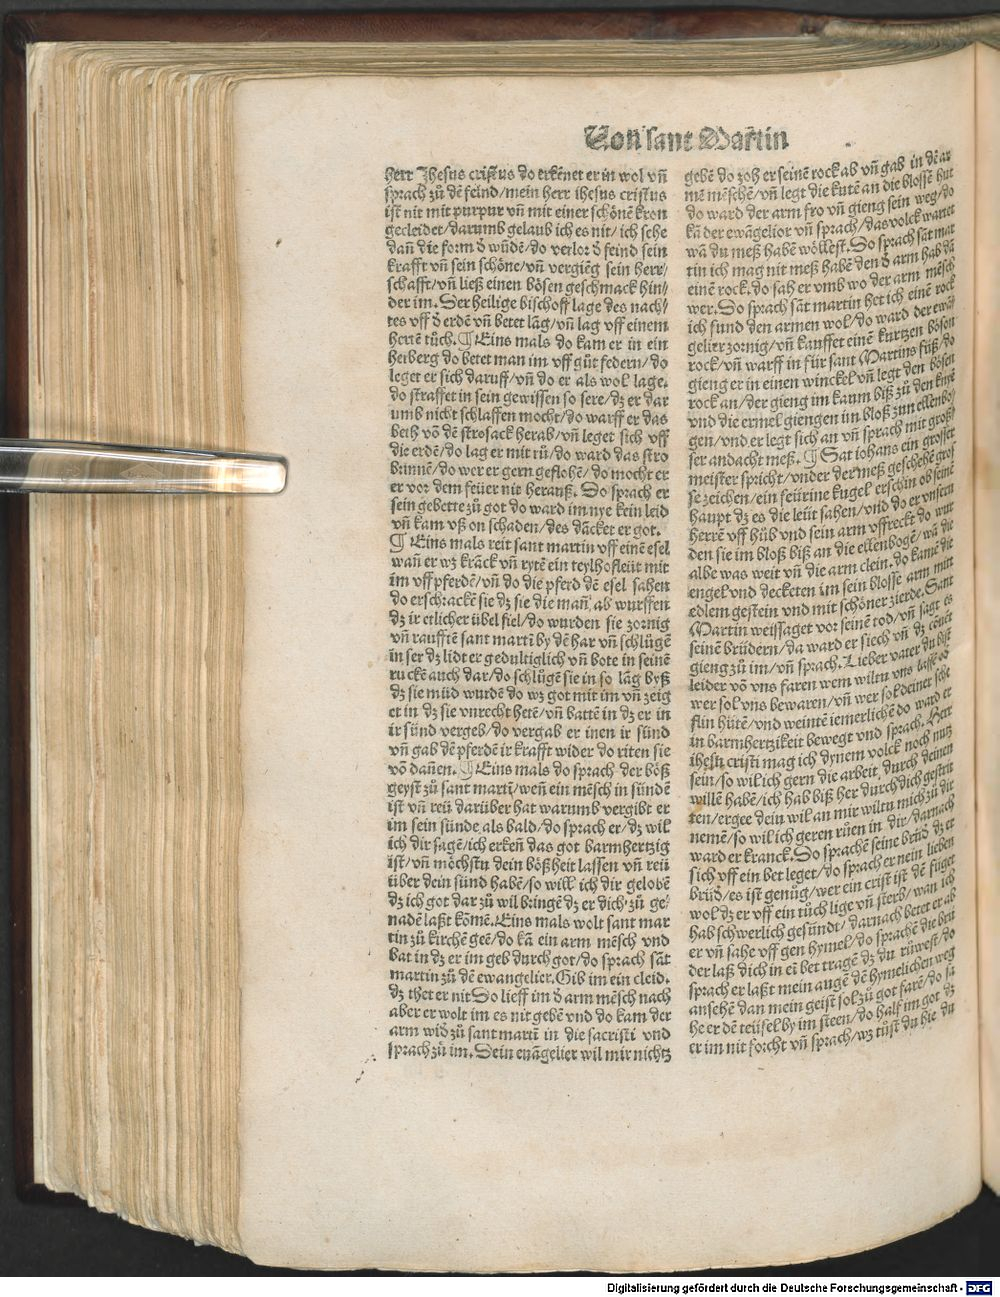 Von sant Martin
herr Jhesus cristus do erkēnet er in wol vñ
sprach zů dē feind/mein herr ihesus cristus
ist nit mit purpur vñ mit einer schönē kron
gecleidet/darumb gelaub ich es nit/ich sehe
dañ die form ď wūdē/do verlor ď feind sein
krafft vñ sein schöne/vñ vergiēg sein herr/
schafft/vñ ließ einen bösen geschmack hin/
der im. Der heilige bischoff lage des nach/
tes vff ď erdē vñ betet lāg/vñ lag vff einem
herrē tůch. ¶ Eins mals do kam er in ein
herberg do betet man im vff gůt federn/do
leget er sich daruff/vñ do er als wol lage.
do straffet in sein gewissen so sere/dz er dar
umb nicht schlaffen mocht/do warff er das
beth vō dē strosack herab/vñ leget sich vff
die erdē/do lag er mit rů/do ward das stro
brinnē/do wer er gern geflohē/do mocht er
er vor dem feüer nit herauß. Do sprach er
sein gebette zů got do ward im nye kein leid
vñ kam vß on schaden/des dācket er got.
¶ Eins mals reit sant martin vff einē esel
wañ er wz krāck vñ rytē ein teyl hofleüt mit
im vff pferdē/vñ do die pferd dē esel sahen
do erschrackē sie dz sie die mañ ab wurffen
dz ir etlicher übel fiel/do wurden sie zornig
vñ raufftē sant martī by dē har vñ schlůgē
in ser dz lidt er gedultiglich vñ bote in seinē
ruckē auch dar/do schlůgē sie in so lāg byß
dz sie müd wurdē do wz got mit im vñ zeig
et in dz sie vnrecht hetē/vñ battē in dz er in
ir sünd vergeb/do vergab er inen ir sünd
vñ gab dē pferdē ir krafft wider do riten sie
vō dañen. ¶ Eins mals do sprach der böß
geyst zů sant martī/weñ ein mēsch in sündē
ist vñ reü darüber hat warumb vergibt er
im sein sünde als bald/do sprach er/dz wil
ich dir sagē/ich erkeñ das got barmhertzig
ist/vñ möchstu dein bößheit lassen vñ reü
über dein sünd habē/so will ich dir gelobē
dz ich got dar zů wil bringē dz er dich zů ge/
nadē laßt kōmē. Eins mals wolt sant mar
tin zů kirchē geē/do kā ein arm mēsch vnd
bat in dz er im geb durch got/do sprach sāt
martin zů dē ewangelier. Gib im ein cleid.
dz thet er nit Do lieff im ď arm mēsch nach
aber er wolt im es nit gebē vnd do kam der
arm wiď zů sant martī in die sacristi vnd
sprach zů im. Dein euāgelier wil mir nichtz
gebē do zoh er seinē rock ab vñ gab in dē ar
mē mēschē/vñ legt die kutē an die blossē hut
do ward der arm fro vñ gieng sein weg/do
kā der ewāgelior vñ sprach/das volck wartet
wā du meß habē wöllest. Do sprach sāt mar
tin ich mag nit meß habē den ď arm hab dā
einē rock. do sah er vmb wo der arm mēsch
wer. Do sprach sāt martin het ich einē rock
ich fund den armen wol/do ward der ewā/
gelier zornig/vñ kauffet einē kurtzen bösen
rock/vñ warff in für sant Martins füß/do
gieng er in einen winckel vñ legt den bösen
rock an/der gieng im kaum biß zů den knyē
vnd die ermel giengen im bloß zun ellenbo/
gen/vnd er legt sich an vñ sprach mit groß/
ser andacht meß. ¶ Sāt iohans ein grosser
meister spricht/vnder der meß geschehē gros
se zeichen/ein feürine kugel erschin ob seinē
haupt dz es die leüt sahen/vnd do er vnsern
herrē vff hůb vnd sein arm vffreckt do wur
den sie im bloß biß an die ellenbogē/wā die
albe was weit vñ die arm clein. do kamē die
engel vnd decketen im sein blosse arm mitt
edlem gestein vnd mit schöner zierde. Sant
Martin weissaget vor seinē tod/vñ sagt es
seinē brüdern/da ward er siech vñ dz couēt
gieng zů im/vñ sprach. Lieber vater du bist
leider vō vns faren wem wiltu vns lassē oď
wer sol vns bewaren/vñ wer sol deiner sche
flin hütē/vnd weintē iemerlichē do ward er
in barmhertzikeit bewegt vnd sprach. Herr
ihesu cristi mag ich dynem volck noch nutz
sein/so wil ich gern die arbeit durch deinen
willē habē/ich hab biß her durch dich gestrit
ten/ergee dein wil an mir wiltu mich zů dir
nemē/so wil ich geren růen in dir/darnach
ward er kranck. Do sprachē seine brüď dz er
sich vff ein bet leget/do sprach er nein lieben
brüď/es ist genůg/wer ein crist ist dē füget
wol dz er vff ein tůch lige vñ sterb/wan ich
hab schwerlich gesündt/darnach betet er ab
er vñ sahe vff gen hymel/do sprachē die brü
der laß dich in eī bet tragē dz du rüwest/do
sprach er laßt mein augē dē hymelichen weg
ansehē dan mein geist sol zů got farē/do sa
he er dē teüfel by im steen/do half im got dz
er im nit forcht vñ sprach/wz tůst du hie du
Digitalisierung gefördert durch die Deutsche Forschungsgemeinschaft - DFG